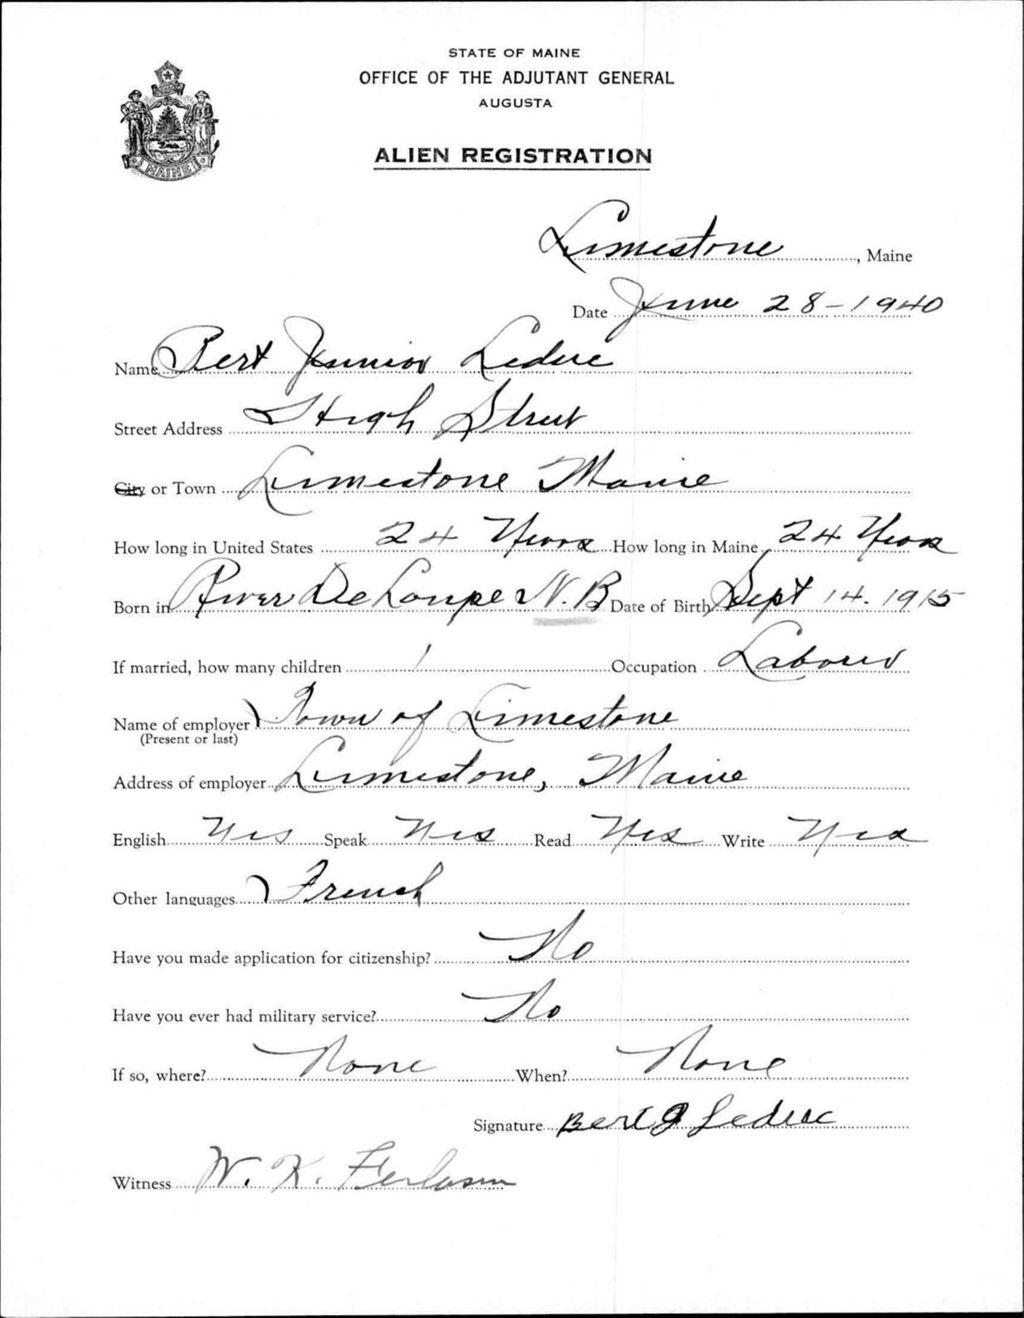 STATE OF MAINE
OFFICE OF THE ADJUTANT GENERAL
AUGUSTA
MAINE
ALIEN REGISTRATION
Limestone, Maine
Date June 28-1940
Name Bert Junior Leclerc
Street Address High Street
City or Town Limestone Maine
How long in United States 24 Years How long in Maine 24 Years
Born in River De Loupe N.B Date of Birth Sept 14. 1915
If married, how many children 1 Occupation Labour
Name of employer Town of Limestone
(Present or last)
Address of employer Limestone, Maine
English Yes Speak Yes Read Yes Write Yes
Other languages French
Have you made application for citizenship? No
Have you ever had military service? No
If so, where? None When? None
Signature Bert J Leclerc
Witness W. K.